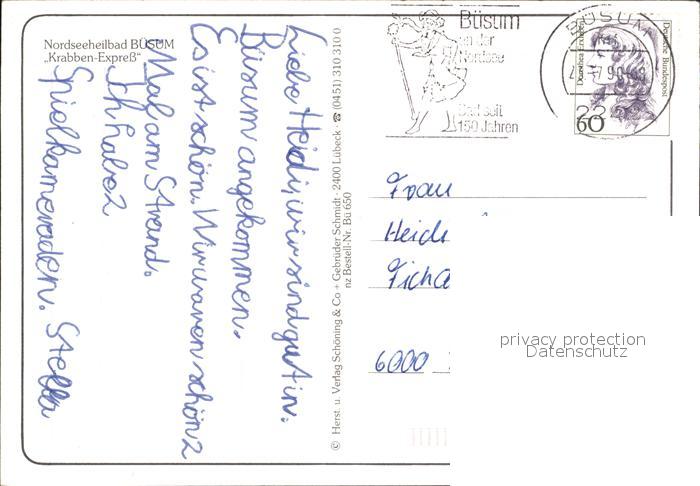 Nordseeheilbad BÜSUM
„Krabben-Expreß“
Liebe Heidi, wir sind gut in.
Büsum angekommen.
Es ist schön. Wir waren schön 2
Mal am Strand.
Ich habe 2
Spielkameraden. Stella
© Herst. u. Verlag Schöning & Co + Gebrüder Schmidt · 2400 Lübeck · ☎ (0451) 310 310 0
nz Bestell-Nr. Bü 650
Büsum
an der
Nordsee
Bad seit
150 Jahren
BÜSUM
Dorothea Erxleben
Deutsche Bundespost
60
Frau
Heidi
6000
privacy protection
Datenschutz